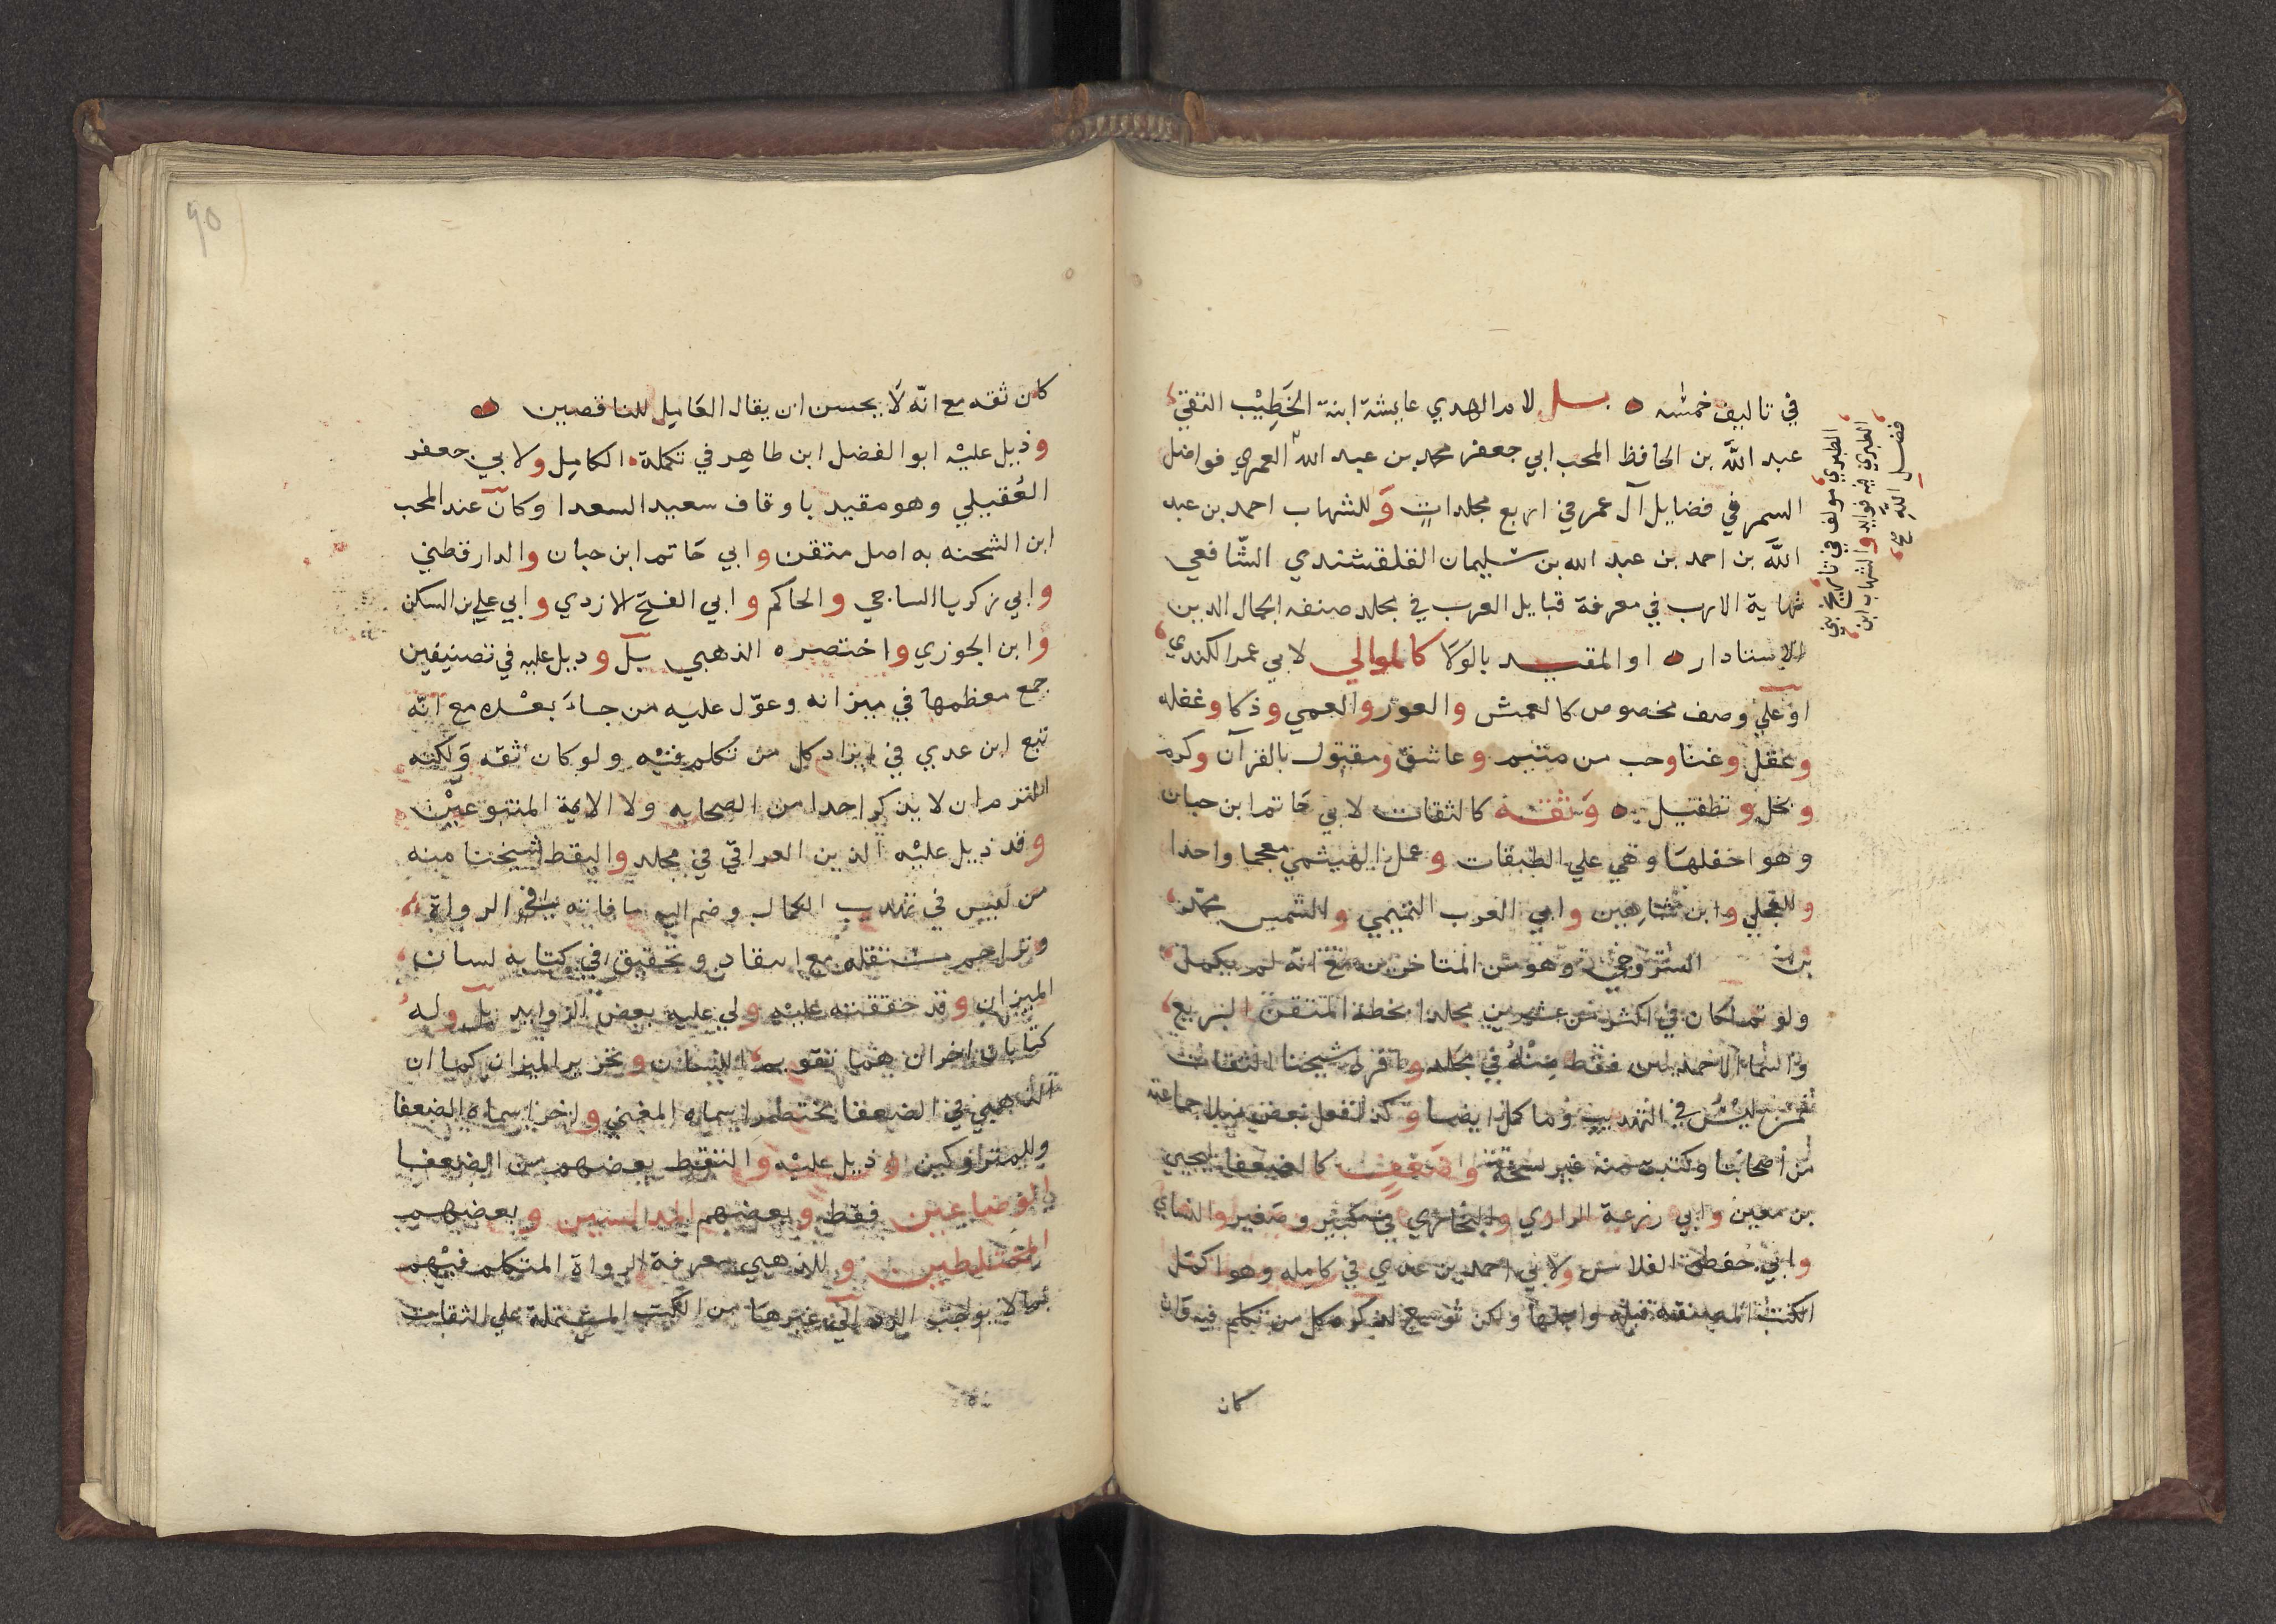 في تاليف خمسه ه بل لام الهدي عايشة ابنة الخَطِيْب التقي
عبد الله بن الحافظ المحب ابي جعفر محمد بن عبد الله العمري فواضل
السمر في فضايل آل عمر في اربع مجلدات وَللشهاب احمد بن عبد
الله بن احمد بن عبد الله بن سليمان القلقشندي الشّافعي
نهاية الارب في معرفة قبايل العرب في مجلد صنفه لجمال الدين
الاستادار ه او المقيد بالوَلا كالموالي لابي عمر الكندي
او علي وصف مخصوص كالعمش والعور والعمي وذكا وغفله
وعقل وغنا وحب من متيم وعاشق ومقتول بالقرآن وكرم
وبخل وتطفيل ه وَثقة كالثقات لابي حَاتم ابن حبان
وهو احفلها وهي علي الطبقات وعمل الهيثمي معجما واحدا
وللعجلي وابن شاهين وابي العرب التميمي والشمس محمد
بن السّروجي وهو من المتاخرين مع انّه لم يكمل
ولو تم لكان في اكثر من عشرين مجلدا بخطه المتقن البديع
والسّما الاحمدين فقط مِنْهُ في مجلد وافرد شيخنا الثقات
ممن ليْسَ في التهذيب وما كمل ايضا وكذا فعل بعض نبلا جماعته
من اصحابنا وكتب منه غير نسخة واضَعِف كالضعفا ليحيي
بن معين وابي زرعة الرازي والبخاري في كبير وصَغير والنساي
وابي حفص الفلاس ولابي احمد بن عدي في كامله وهو اكمل
الكتب المصنفة قبله واجلها ولكن توسع لذكره كل من تكلم فيه وَان
كان
الطبري مولف في تاريخ بني
الطبري فيه فوايد والشهاب ابن
فضل اللهِ
كان ثقه مع انّه لَا يحسن ان يقال الكَامِل للناقصين
وذيل عليْه ابو الفضل ابن طاهِر في تكملة الكامِل ولابي جعفر
العُقيلي وهو مقيد باوقاف سعيد السعدا وكان عند المحب
ابن الشحنه به اصل متقن وابي حَاتم ابن حبان والدارقطني
وابي زكريا الساجي والحاكم وابي الفتح الازدي وابي علي بن السكن
وابن الجوزي واختصره الذهبي بل وذيل عليه في تصنيفين
جمع معظمها في ميزانه وعوّل عليه من جاءَ بعْده مع انّه
تبع ابن عدي في ايراد كل من تكلم فيْه ولو كان ثقه وَلكنه
التزم ان لا يذكر احدا من الصحابه ولا الايمة المتبوعيْن
وقد ذيل عليْه الزين العراقي في مجلد والتقط شيخنا منه
من ليس في تهذيب الكمال وضم اليه ما فاته في الرواة
وتراجم مستقله مع انتقاد وتحقيق في كتابه لسان
الميزان وقد حققته عليْه ولي عليه بعض الزوايد بل وله
كتابان اخران هما تقويم اللسان وتحرير الميزان كما ان
للذهبي في الضعفا مختصرا سماه المغني واخر سماه الضعفا
وللمتروكين وذيل عليْه والتقط بعضهم من الضعفا
الوضاعين فقط وبعضهم المدلسين وبعضهم
المختلطين وللذهبي معرفة الرواة المتكلم فيْهم
بما لا يوجب الرد الي غيرها من الكتب المشتملة علي الثقات